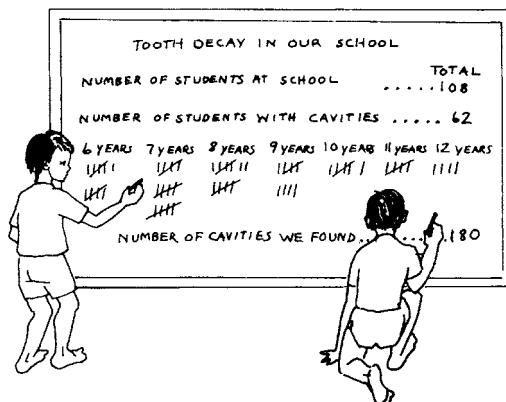 TOOTH DECAY IN OUR SCHOOL
TOTAL
NUMBER OF STUDENTS AT SCHOOL ..... 108
NUMBER OF STUDENTS WITH CAVITIES ..... 62
6 YEARS 7 YEARS 8 YEARS 9 YEARS 10 YEARS 11 YEARS 12 YEARS
NUMBER OF CAVITIES WE FOUND .......... 180